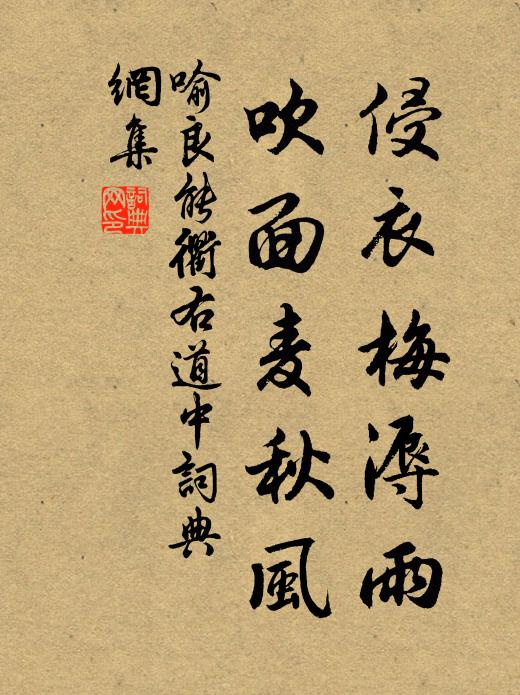 侵衣梅溽雨
吹面麦秋風
喻良能衢右道中詞典
網集
詞典
网印